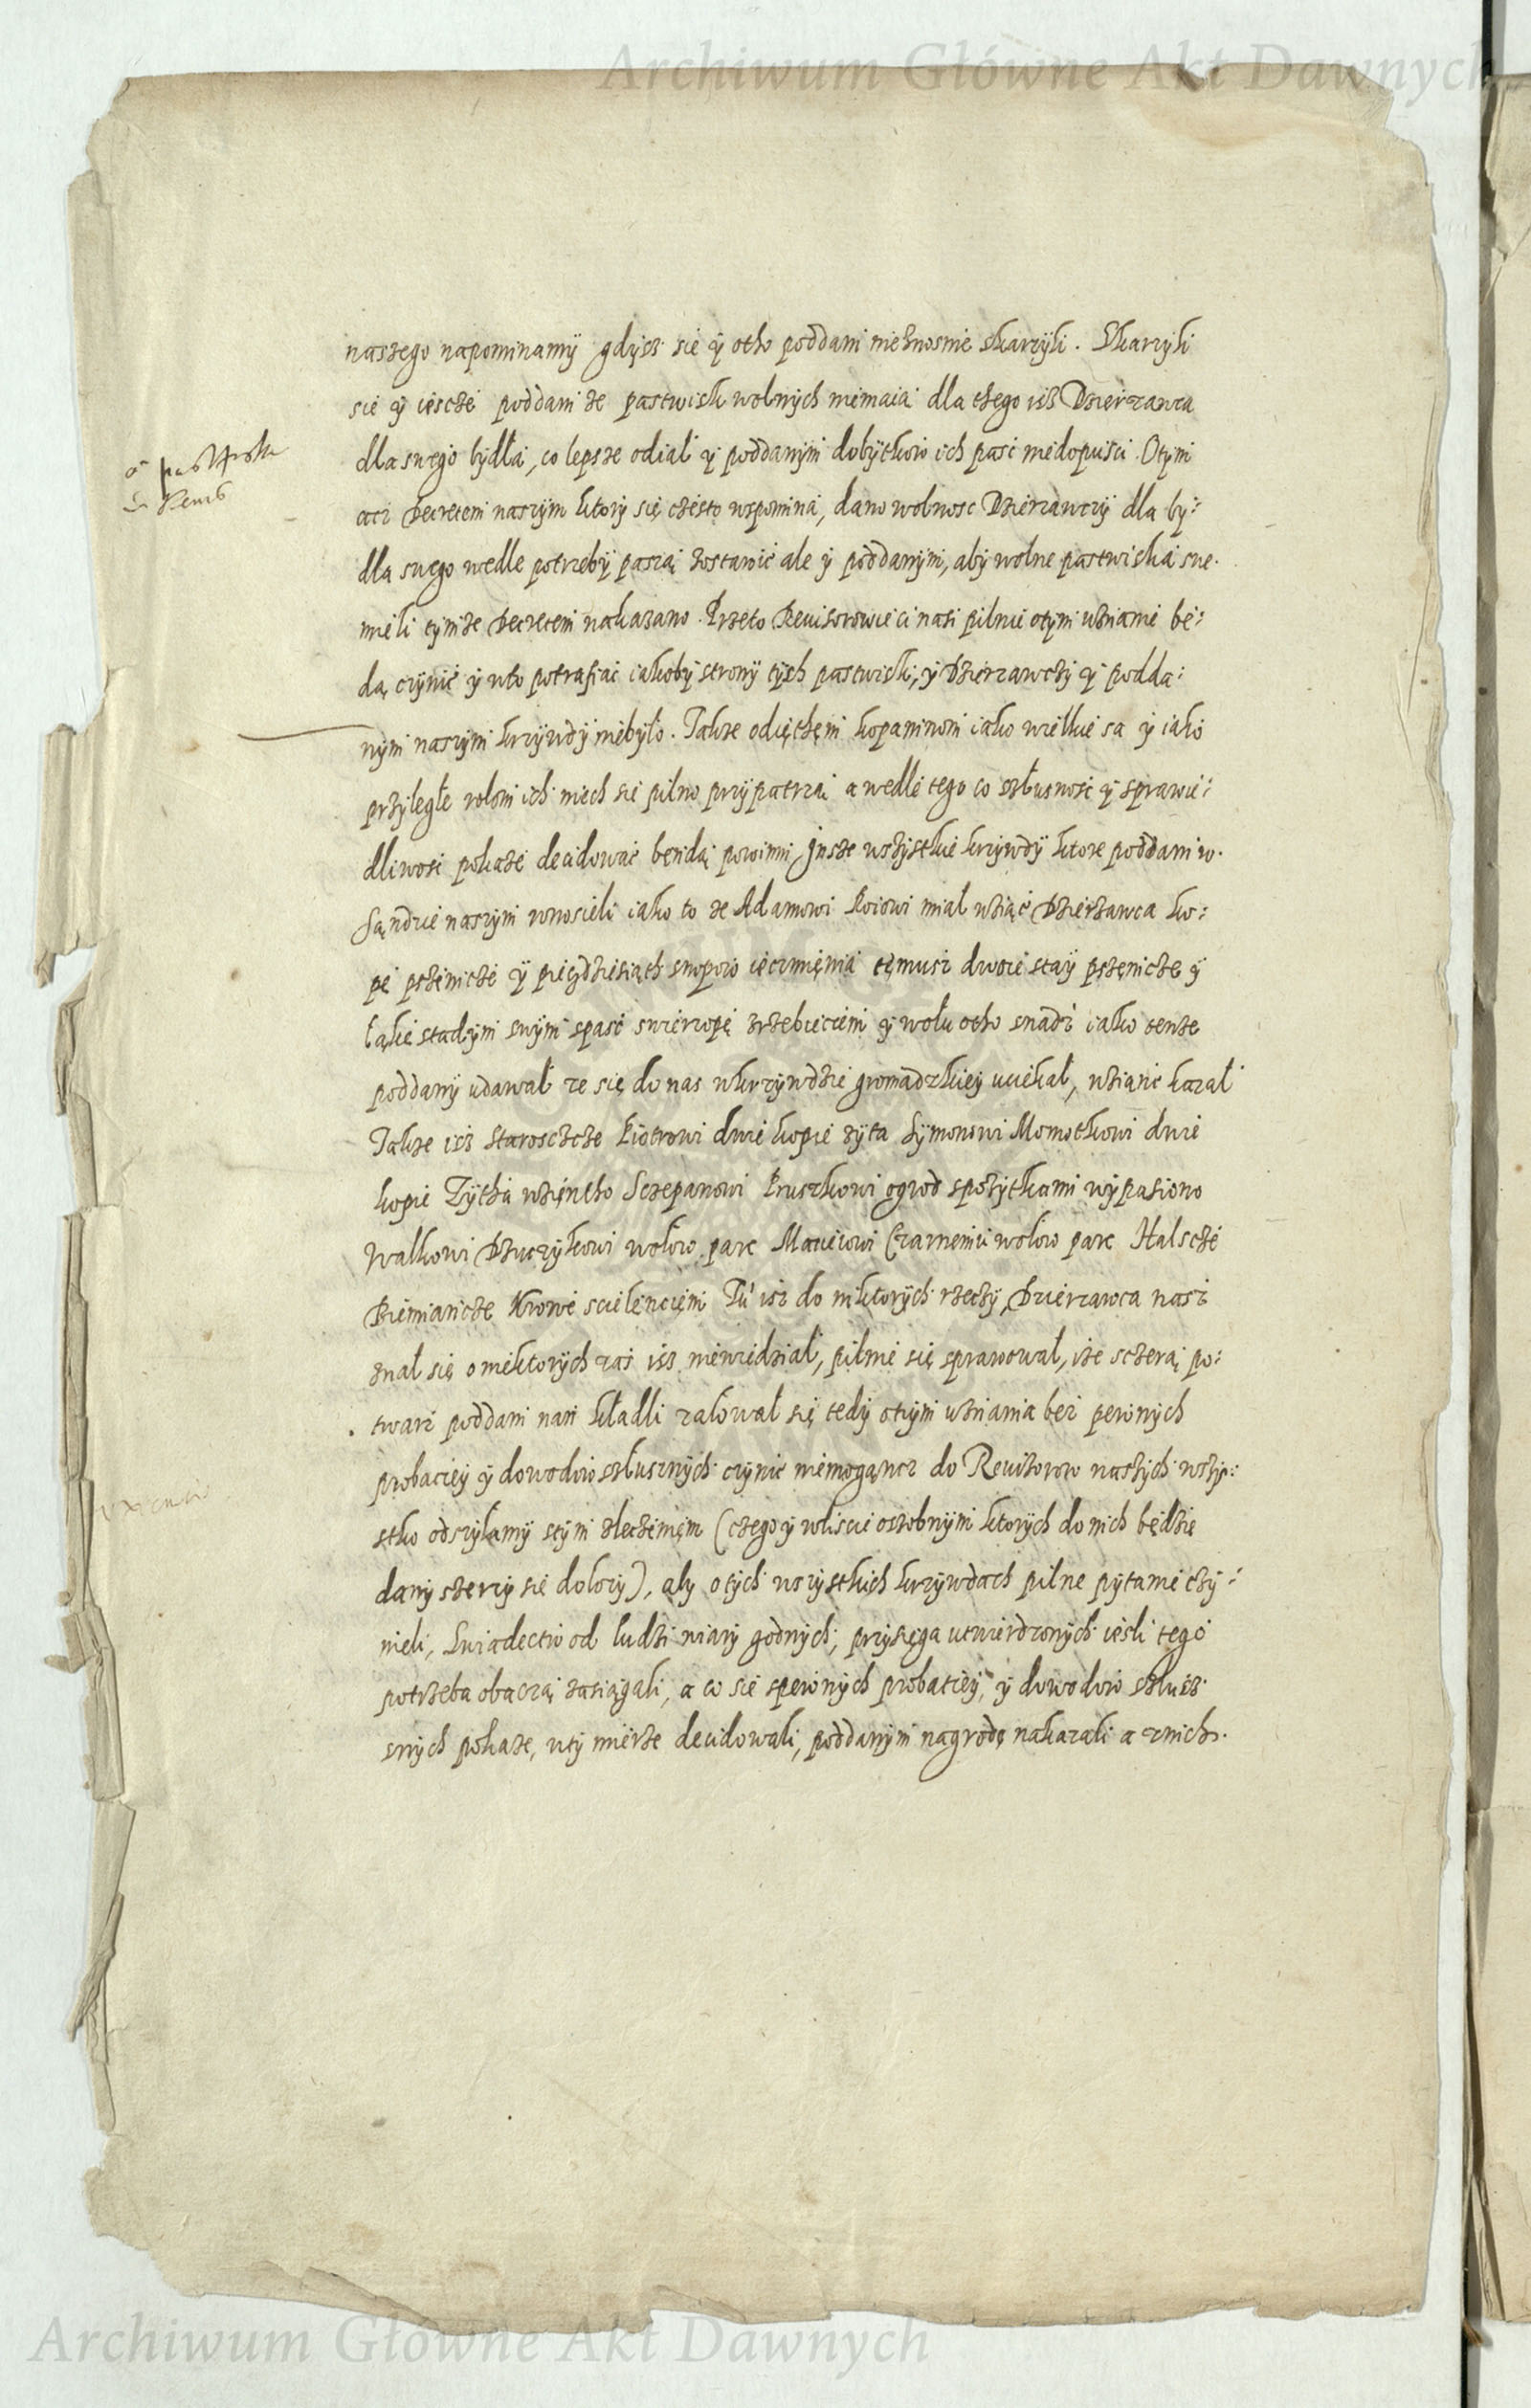 Archiwum Główne Akt Dawnych
naszego napominamÿ gdÿsz sie ÿ otho poddani nieznosnie skarzÿli. Skarzÿli
sie ÿ iescze poddani ze pastwisk wolnÿch niemaią dla thego isz Dzierzawca
dla swego bÿdła, co lepsze odiał ÿ poddanÿm dobÿtkow ich pasć niedopusci. Otÿm
acz Decretem naszÿm ktorÿ się często wspomina, dano wolnosc Dzierzawczÿ dla bÿ:
dla swego wedle potrzebÿ paszą zostawić ale ÿ poddanÿm, abÿ wolne pastwiska swe
mieli tÿmze Decretem nakazano. Przeto Reuisorowie ci nasi pilnie otÿm uznanie bę:
dą czÿnić ÿ wto potrafiać iakobÿ stronÿ tÿch pastwisk, ÿ Dzierzawczÿ ÿ podda:
nÿm naszÿm krzÿwdÿ niebÿło. Takze odiętem kopaninom iako wielkie sa ÿ iako
przÿlegle rolom ich niech sie pilno przÿpatrzą a wedle tego co szłusnosc ÿ sprawie:
dliwosc pokaze decidować bendą powinni, Insze wszÿstkie krzÿwdÿ ktore poddani w
Sądzie naszÿm wnosieli iako to ze Adamowi Koiowi miał wziąć Dzierzawca ko:
pę pszenicze ÿ pięzdziesiąth snopow ięczmięnia tęmusz dwoie staÿ pszenicze ÿ
łąkę stadÿm swÿm spasć swierzopę zrzebięciem ÿ wołu otho snadz iako tenze
poddanÿ udawał ze się do nas wkrzÿwdzie gromadzkieÿ uciekał, wziąnc kazał
Takze isz Starosczcze Piotrowi dwie kopie zÿta Sÿmonowi Momotkowi dwie
kopie Zÿtha wziętho Sczepanowi Kruszkowi ogrod spozÿtkami wÿpasiono
Walkowi Dzuczÿkowi wołow parę Maciciowi Czarnemu wołow parę Halscze
Ziemiancze Krowe scielęncięm Tu isz do niktorÿch rzeczÿ, Dzierzawca nasz
znał się o niektorÿch zaś isz niewiedział, pilnie się sprawował, ize sczerą po:
twarz poddani nan kładli załował się tedÿ otÿm uznania bez pewnÿch
probacieÿ ÿ dowodow szłusznÿch czÿnic niemogąncz do Reuizorow naszÿch wszÿ:
stko odszÿłamÿ stÿm zleczenięm (czego ÿ wliscie oszobnÿm ktorÿch do nich będzie
danÿ szerzÿ sie dołozÿ), abÿ o tÿch wszÿstkich krzÿwdach pilne pÿtanie czÿ:
nieli, Swiadectw od ludzi wiarÿ godnÿch, przÿsięgą utwierdzonÿch iesli tego
potrzeba obaczą zasiągali, a co sie spewnÿch probacieÿ, ÿ dowodow szłusz
snÿch pokaze, wtÿ mierze decidowali, poddanÿm nagrodę nakazali a znich
Archiwum Główne Akt Dawnych